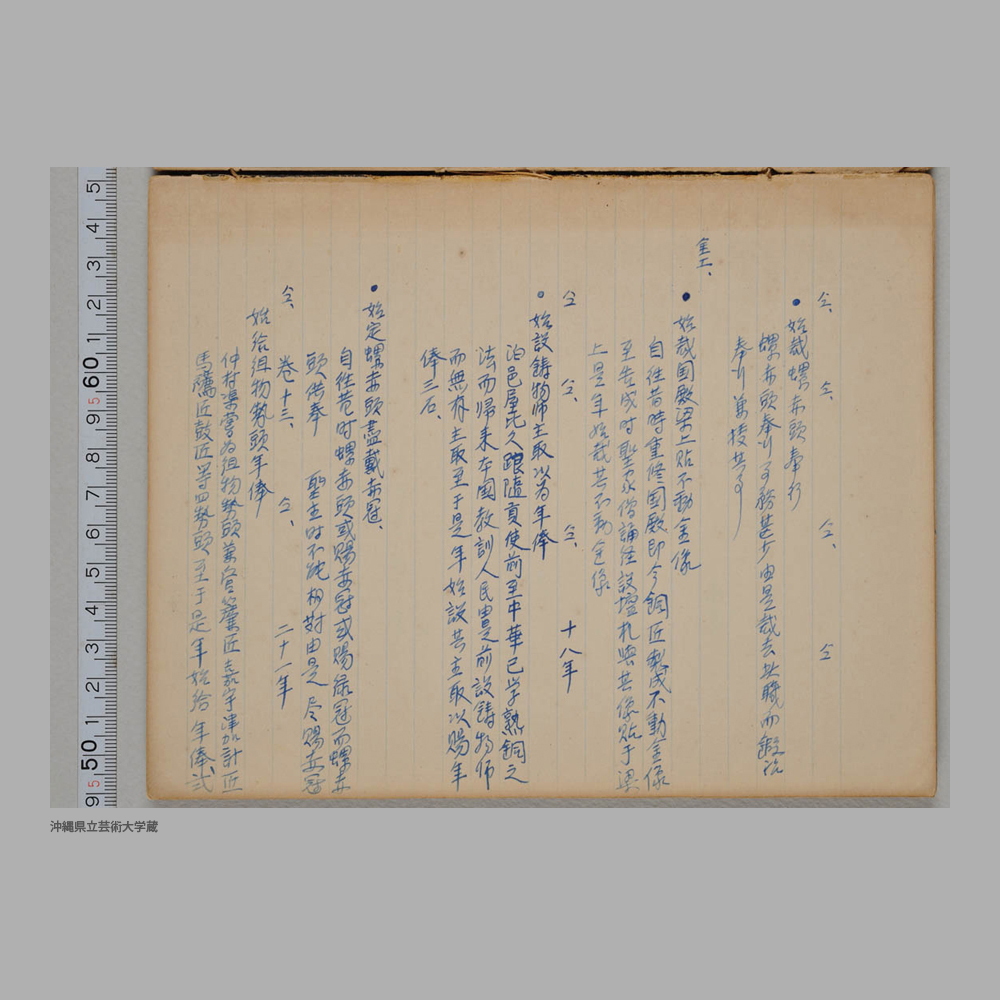 仝、仝、仝、仝
●始裁螺赤頭奉行
螺赤頭奉行事務甚少由是裁去其職而鍛冶
奉行兼接其事
金工、
●始裁国殿梁上貼不動金像
自往昔時重修国殿即令銅匠製成不動金像
至告成時聖家僧誦経設壇札典其像貼于梁
上是年始裁其不動金像
仝 仝、 仝、 十八年
○始設鋳物師主取以為年俸
泊邑屋比久跟随貢使前至中華已学熟銅之
法而帰来本国教訓人民由是前設鋳物師
而無有主取至于是年始設其主取以賜年
俸三石、
●始定螺赤頭盡戴赤冠、
自往昔時螺赤頭或賜赤冠或賜緑冠而螺赤
頭供奉 聖主時不能相対由是尽賜赤冠
仝、巻十三、仝、二十一年
始給組物勢頭年俸
仲村渠嘗為組物勢頭兼管匠嘉手津加計匠
馬匠鼓匠等四勢頭至于是年始給年俸弐
沖縄県立芸術大学蔵